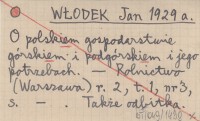 WŁODEK Jan 1929 a.
O polskiem gospodarstwie
górskiem i podgórskiem i jego
potrzebach. — Rolnictwo
(Warszawa) r. 2, t. 1, nr 3,
s. — . Także odbitka.